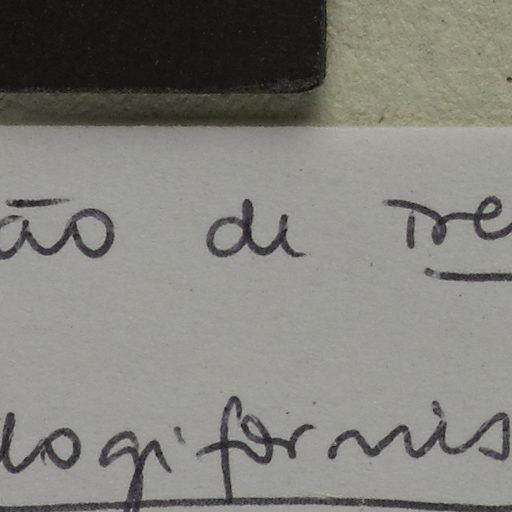 ão de Tre
logiformis